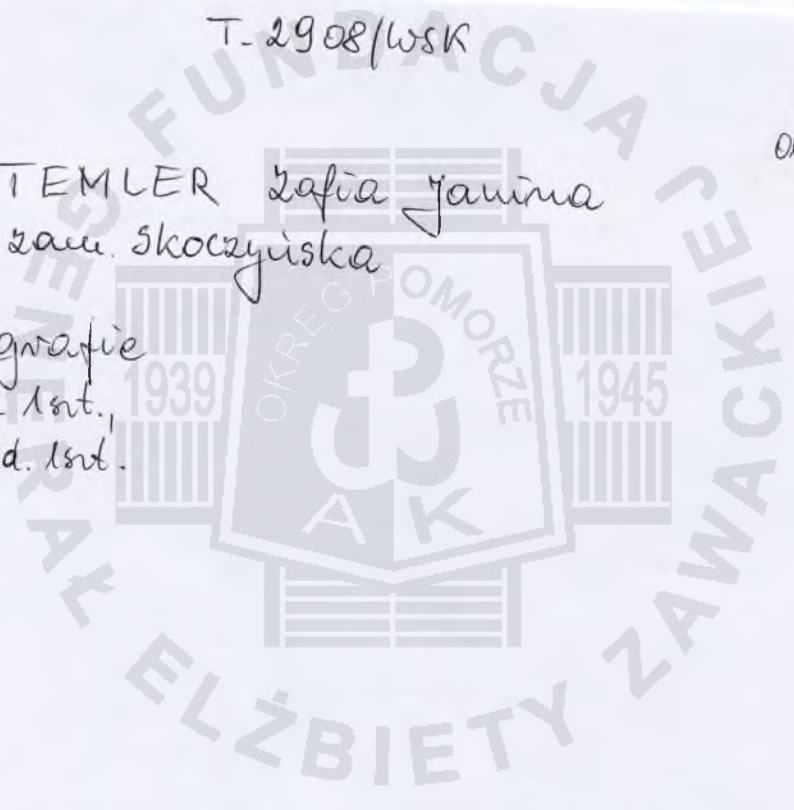 T-2908/WSK
TEMLER Zofia Janina
zam. Skoczyńska
1szt.,
1szt.
FUNDACJA GENERAŁ ELŻBIETY ZAWACKIEJ
OKRĘG POMORZE
1939
1945
AK